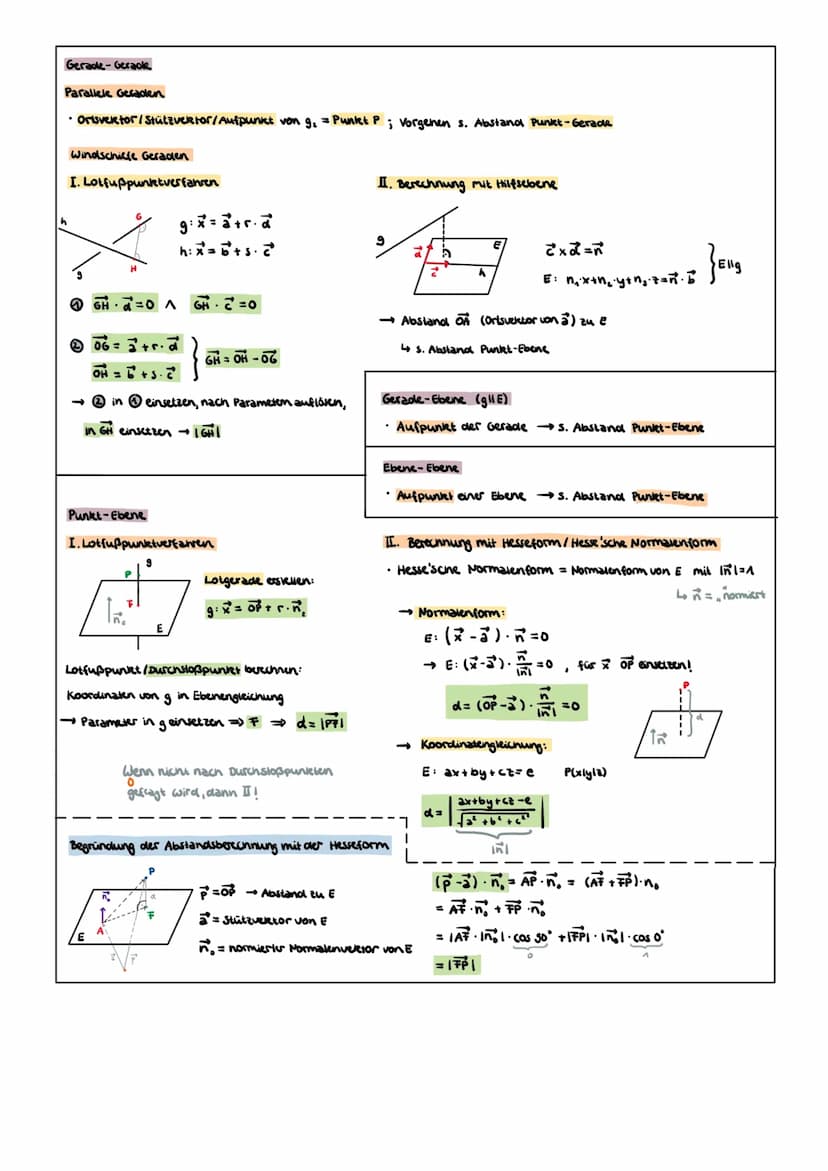 Gerade-Gerade
Parallele Geraden
· Ortsvektor/Stützvektor/Aufpunkt von g₂ = Punkt P ; Vorgehen s. Abstand Punkt-Gerade
Windschiefe Geraden
I. Lotfußpunktverfahren
h
G
g
H
g: x⃗ = a⃗ + r · d⃗
h: x⃗ = b⃗ + s · c⃗
① GH⃗ · d⃗ = 0 ∧ GH⃗ · c⃗ = 0
② OG⃗ = a⃗ + r · d⃗
OH⃗ = b⃗ + s · c⃗
} GH⃗ = OH⃗ - OG⃗
→ ② in ① einsetzen, nach Parametern auflösen,
in GH⃗ einsetzen → |GH⃗|
II. Berechnung mit Hilfsebene
g
E
d⃗
c⃗
h
c⃗ x d⃗ = n⃗
E: n₁·x+n₂·y+n₃·z = n⃗ · b⃗
} E||g
→ Abstand OA⃗ (Ortsvektor von a⃗) zu E
↳ s. Abstand Punkt-Ebene
Gerade-Ebene (g||E)
· Aufpunkt der Gerade → s. Abstand Punkt-Ebene
Ebene-Ebene
· Aufpunkt einer Ebene → s. Abstand Punkt-Ebene
Punkt-Ebene
I. Lotfußpunktverfahren
g
P
F
n⃗₂
E
Lotgerade erstellen:
g: x⃗ = OP⃗ + r · n⃗₂
Lotfußpunkt/Durchstoßpunkt berechnen:
Koordinaten von g in Ebenengleichung
→ Parameter in g einsetzen ⇒ F ⇒ d = |PF⃗|
Wenn nicht nach Durchstoßpunkten
gefragt wird, dann II!
II. Berechnung mit Hesseform/Hesse'sche Normalenform
· Hesse'sche Normalenform = Normalenform von E mit |n⃗| = 1
↳ n⃗ = „normiert
→ Normalenform:
E: (x⃗ - a⃗) · n⃗ = 0
→ E: (x⃗ - a⃗) · n⃗/|n⃗| = 0 , für x⃗ OP⃗ einsetzen!
d = (OP⃗ - a⃗) · n⃗/|n⃗| = 0
P
d
n⃗
→ Koordinatengleichung:
E: ax+by+cz = e P(x|y|z)
d = |(ax+by+cz-e)/√(a²+b²+c²)|
|n⃗|
Begründung der Abstandsberechnung mit der Hesseform
P
n⃗₀
d
F
A
E
p⃗ = OP⃗ → Abstand zu E
a⃗ = Stützvektor von E
n⃗₀ = normierter Normalenvektor von E
(p⃗ - a⃗) · n⃗₀ = AP⃗ · n⃗₀ = (AF⃗ + FP⃗) · n₀
= AF⃗ · n⃗₀ + FP⃗ · n⃗₀
= |AF⃗ · |n⃗₀| · cos 90° + |FP⃗| · |n⃗₀| · cos 0°
0 1
= |FP⃗|